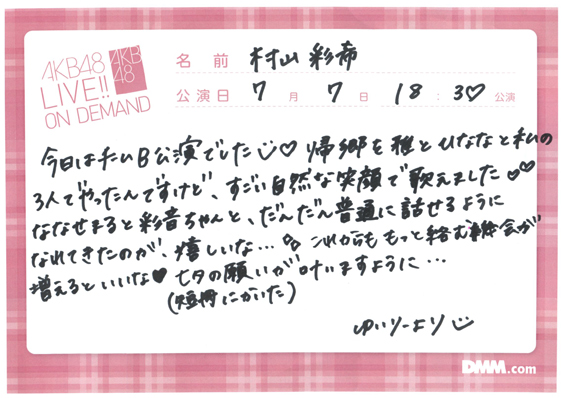 AKB48
LIVE!!
ON DEMAND
AKB
48
名前 村山 彩希
公演日 7月 7日 18:30♡公演
今日はチームB公演でした♡ 帰郷を雅とひななと私の
3人でやったんですけど、すごい自然な笑顔で歌えました♡♡
ななせまると彩音ちゃんと、だんだん普通に話せるように
なれてきたのが、嬉しいな…◇ これからももっと絡む機会が
増えるといいな♥ 七夕の願いが叶いますように…
(短冊にかいた)
ゆいりーより
DMM.com